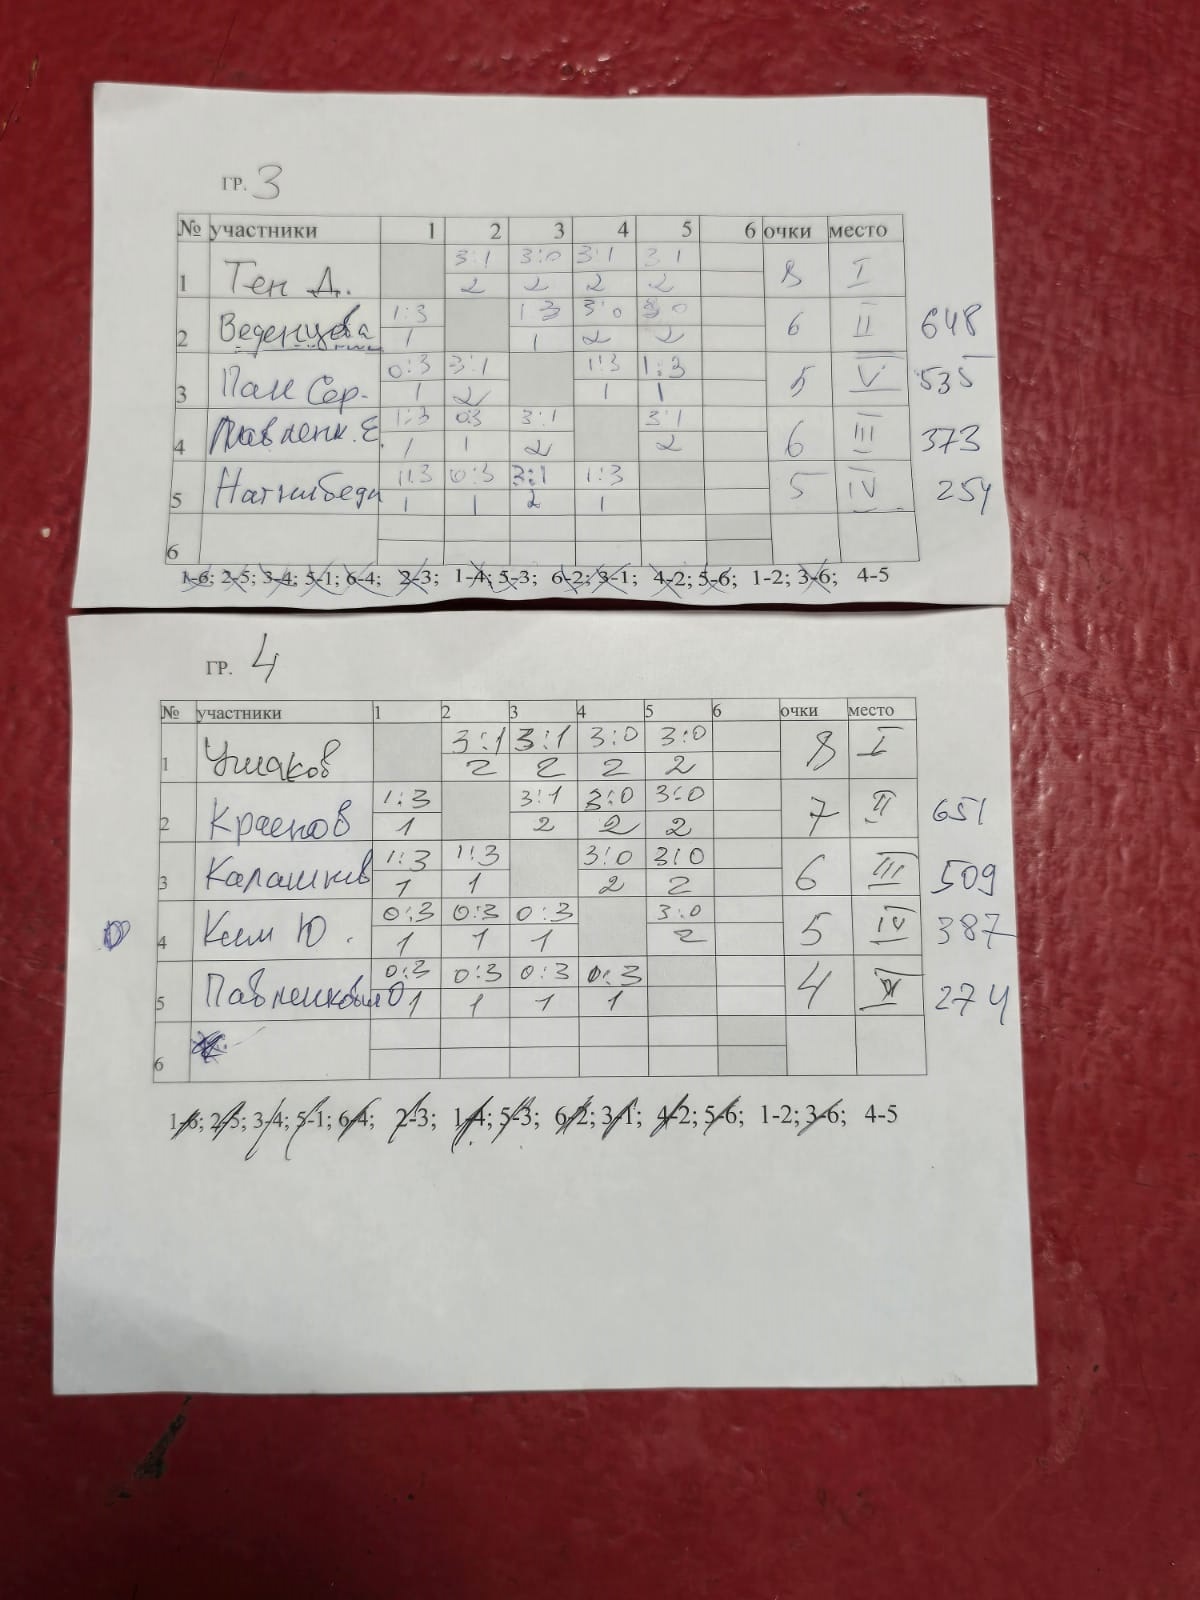 ГР. 3
№ участники 1 2 3 4 5 6 очки место
1 Тен Д. 3:1 3:0 3:1 3 1 8 I
2 2 2 2
2 Веденцева 1:3 1 3 3:0 3 0 6 II 648
1 1 2 2
3 Пак Сер. 0:3 3:1 1:3 1:3 5 V 535
1 2 1 1
4 Павленк. Е. 1:3 0:3 3:1 3:1 6 III 373
1 1 2 2
5 Нагнибеда 1:3 0:3 3:1 1:3 5 IV 254
1 1 2 1
6
1-6; 2-5; 3-4; 5-1; 6-4; 2-3; 1-4; 5-3; 6-2; 3-1; 4-2; 5-6; 1-2; 3-6; 4-5
ГР. 4
№ участники 1 2 3 4 5 6 очки место
1 Ушаков 3:1 3:1 3:0 3:0 8 I
2 2 2 2
2 Краснов 1:3 3:1 3:0 3:0 7 II 651
1 2 2 2
3 Калашнев 1:3 1:3 3:0 3:0 6 III 509
1 1 2 2
4 Ким Ю. 0:3 0:3 0:3 3:0 5 IV 387
1 1 1 2
5 0:3 0:3 0:3 0:3 4 V 274
1 1 1 1
6
1-6; 2-5; 3-4; 5-1; 6-4; 2-3; 1-4; 5-3; 6-2; 3-1; 4-2; 5-6; 1-2; 3-6; 4-5